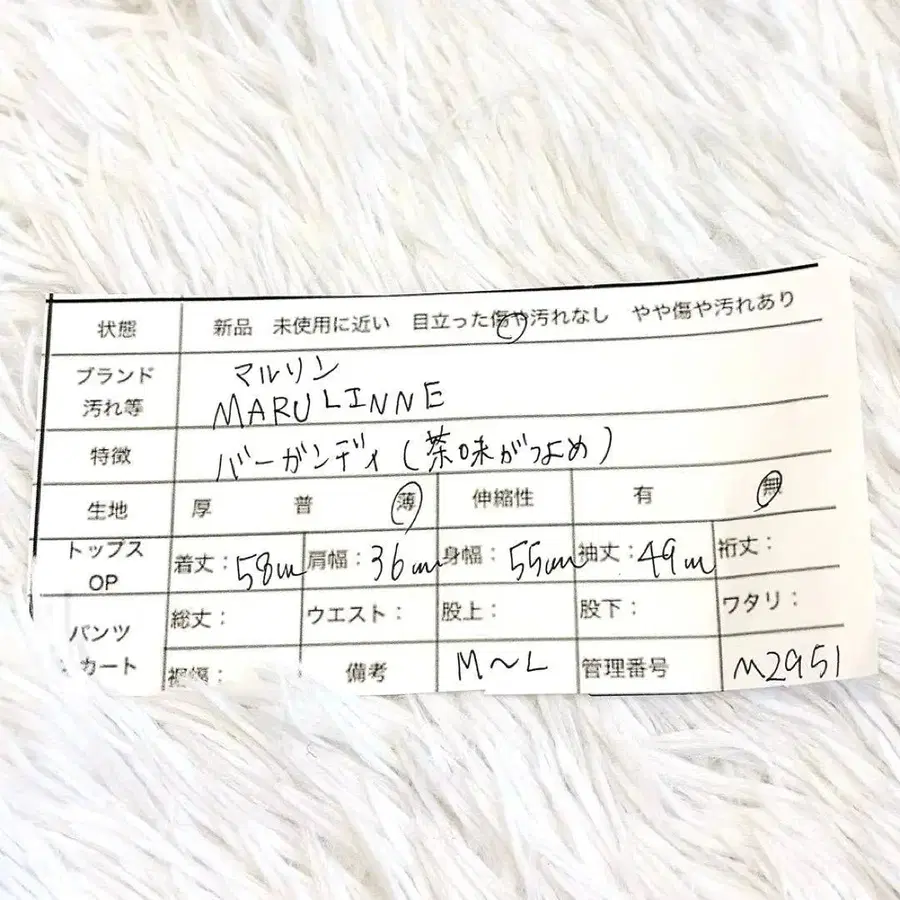 状態 新品 未使用に近い 目立った傷や汚れなし やや傷や汚れあり
ブランド マルリン
汚れ等 MARU LINNE
特徴 バーガンディ(茶味がつよめ)
生地 厚 普 薄 伸縮性 有 無
トップス OP 着丈:58cm 肩幅:36cm 身幅:55cm 袖丈:49cm 裄丈:
パンツ 総丈: ウエスト: 股上: 股下: ワタリ:
カート 裾幅: 備考 M〜L 管理番号 M2951